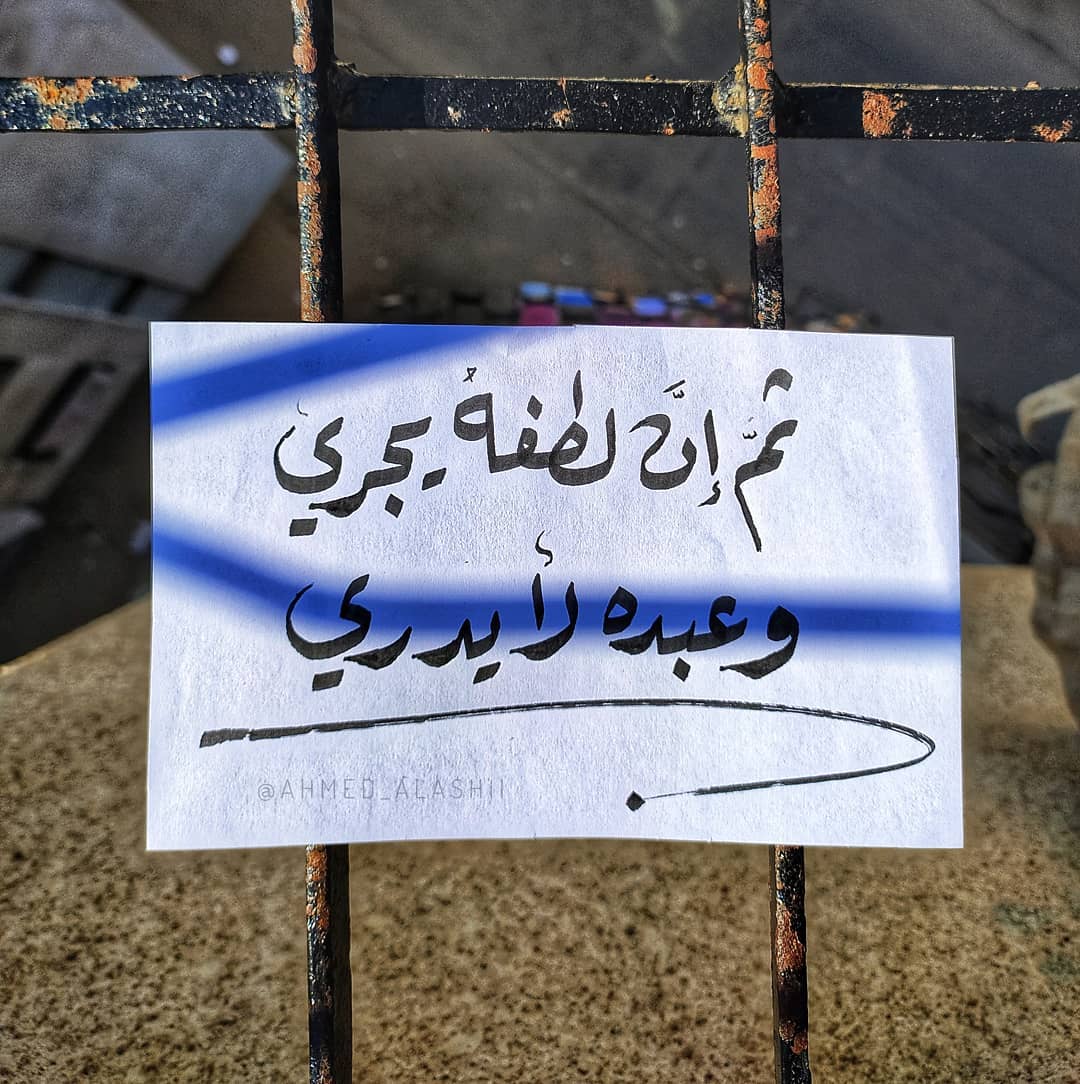 ثمَّ إنَّ لطفهُ يجري
وعبده لأ يدري
@AHMED_ALASHII